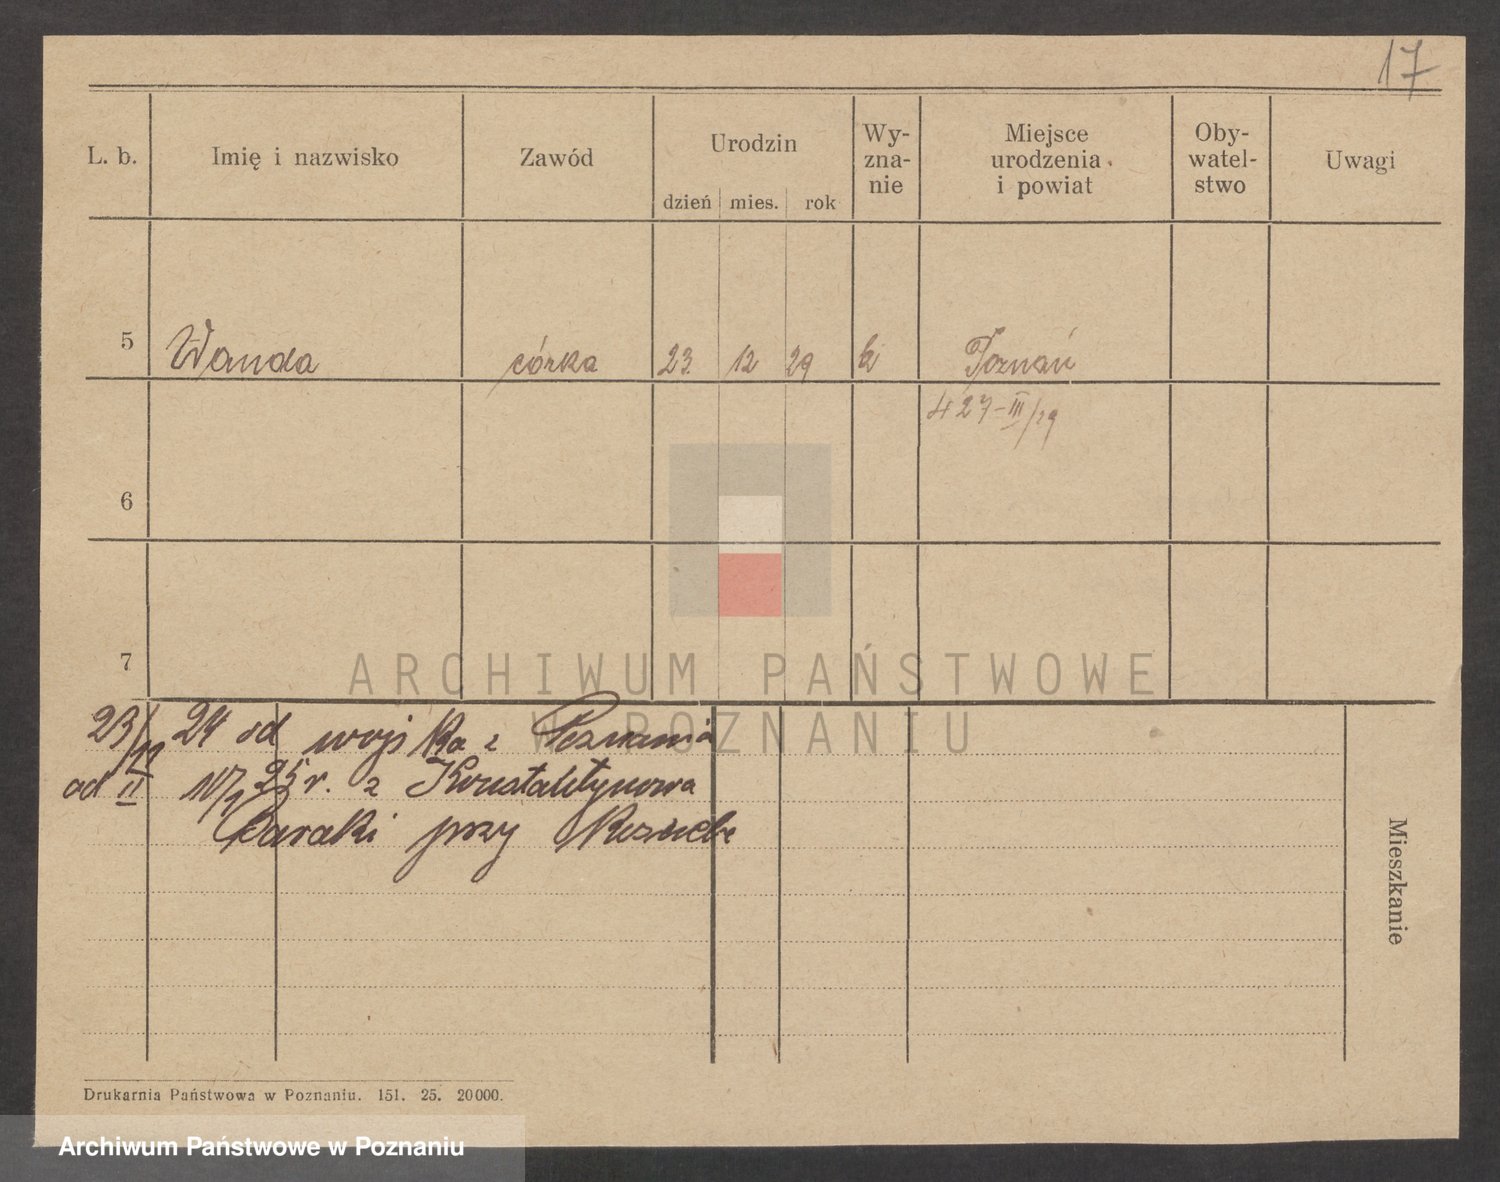 17
L. b. Imię i nazwisko Zawód Urodzin dzień mies. rok Wy-zna-nie Miejsce urodzenia i powiat Oby-watel-stwo Uwagi
5 Wanda córka 23. 12 29 k Poznań
27-III/29
6
7
ARCHIWUM PAŃSTWOWE
W POZNANIU
23/12 24 od wojska z Poznania
od II 10/2 25 r. z
Baraki przy
Mieszkanie
Drukarnia Państwowa w Poznaniu. 151. 25. 20000.
Archiwum Państwowe w Poznaniu